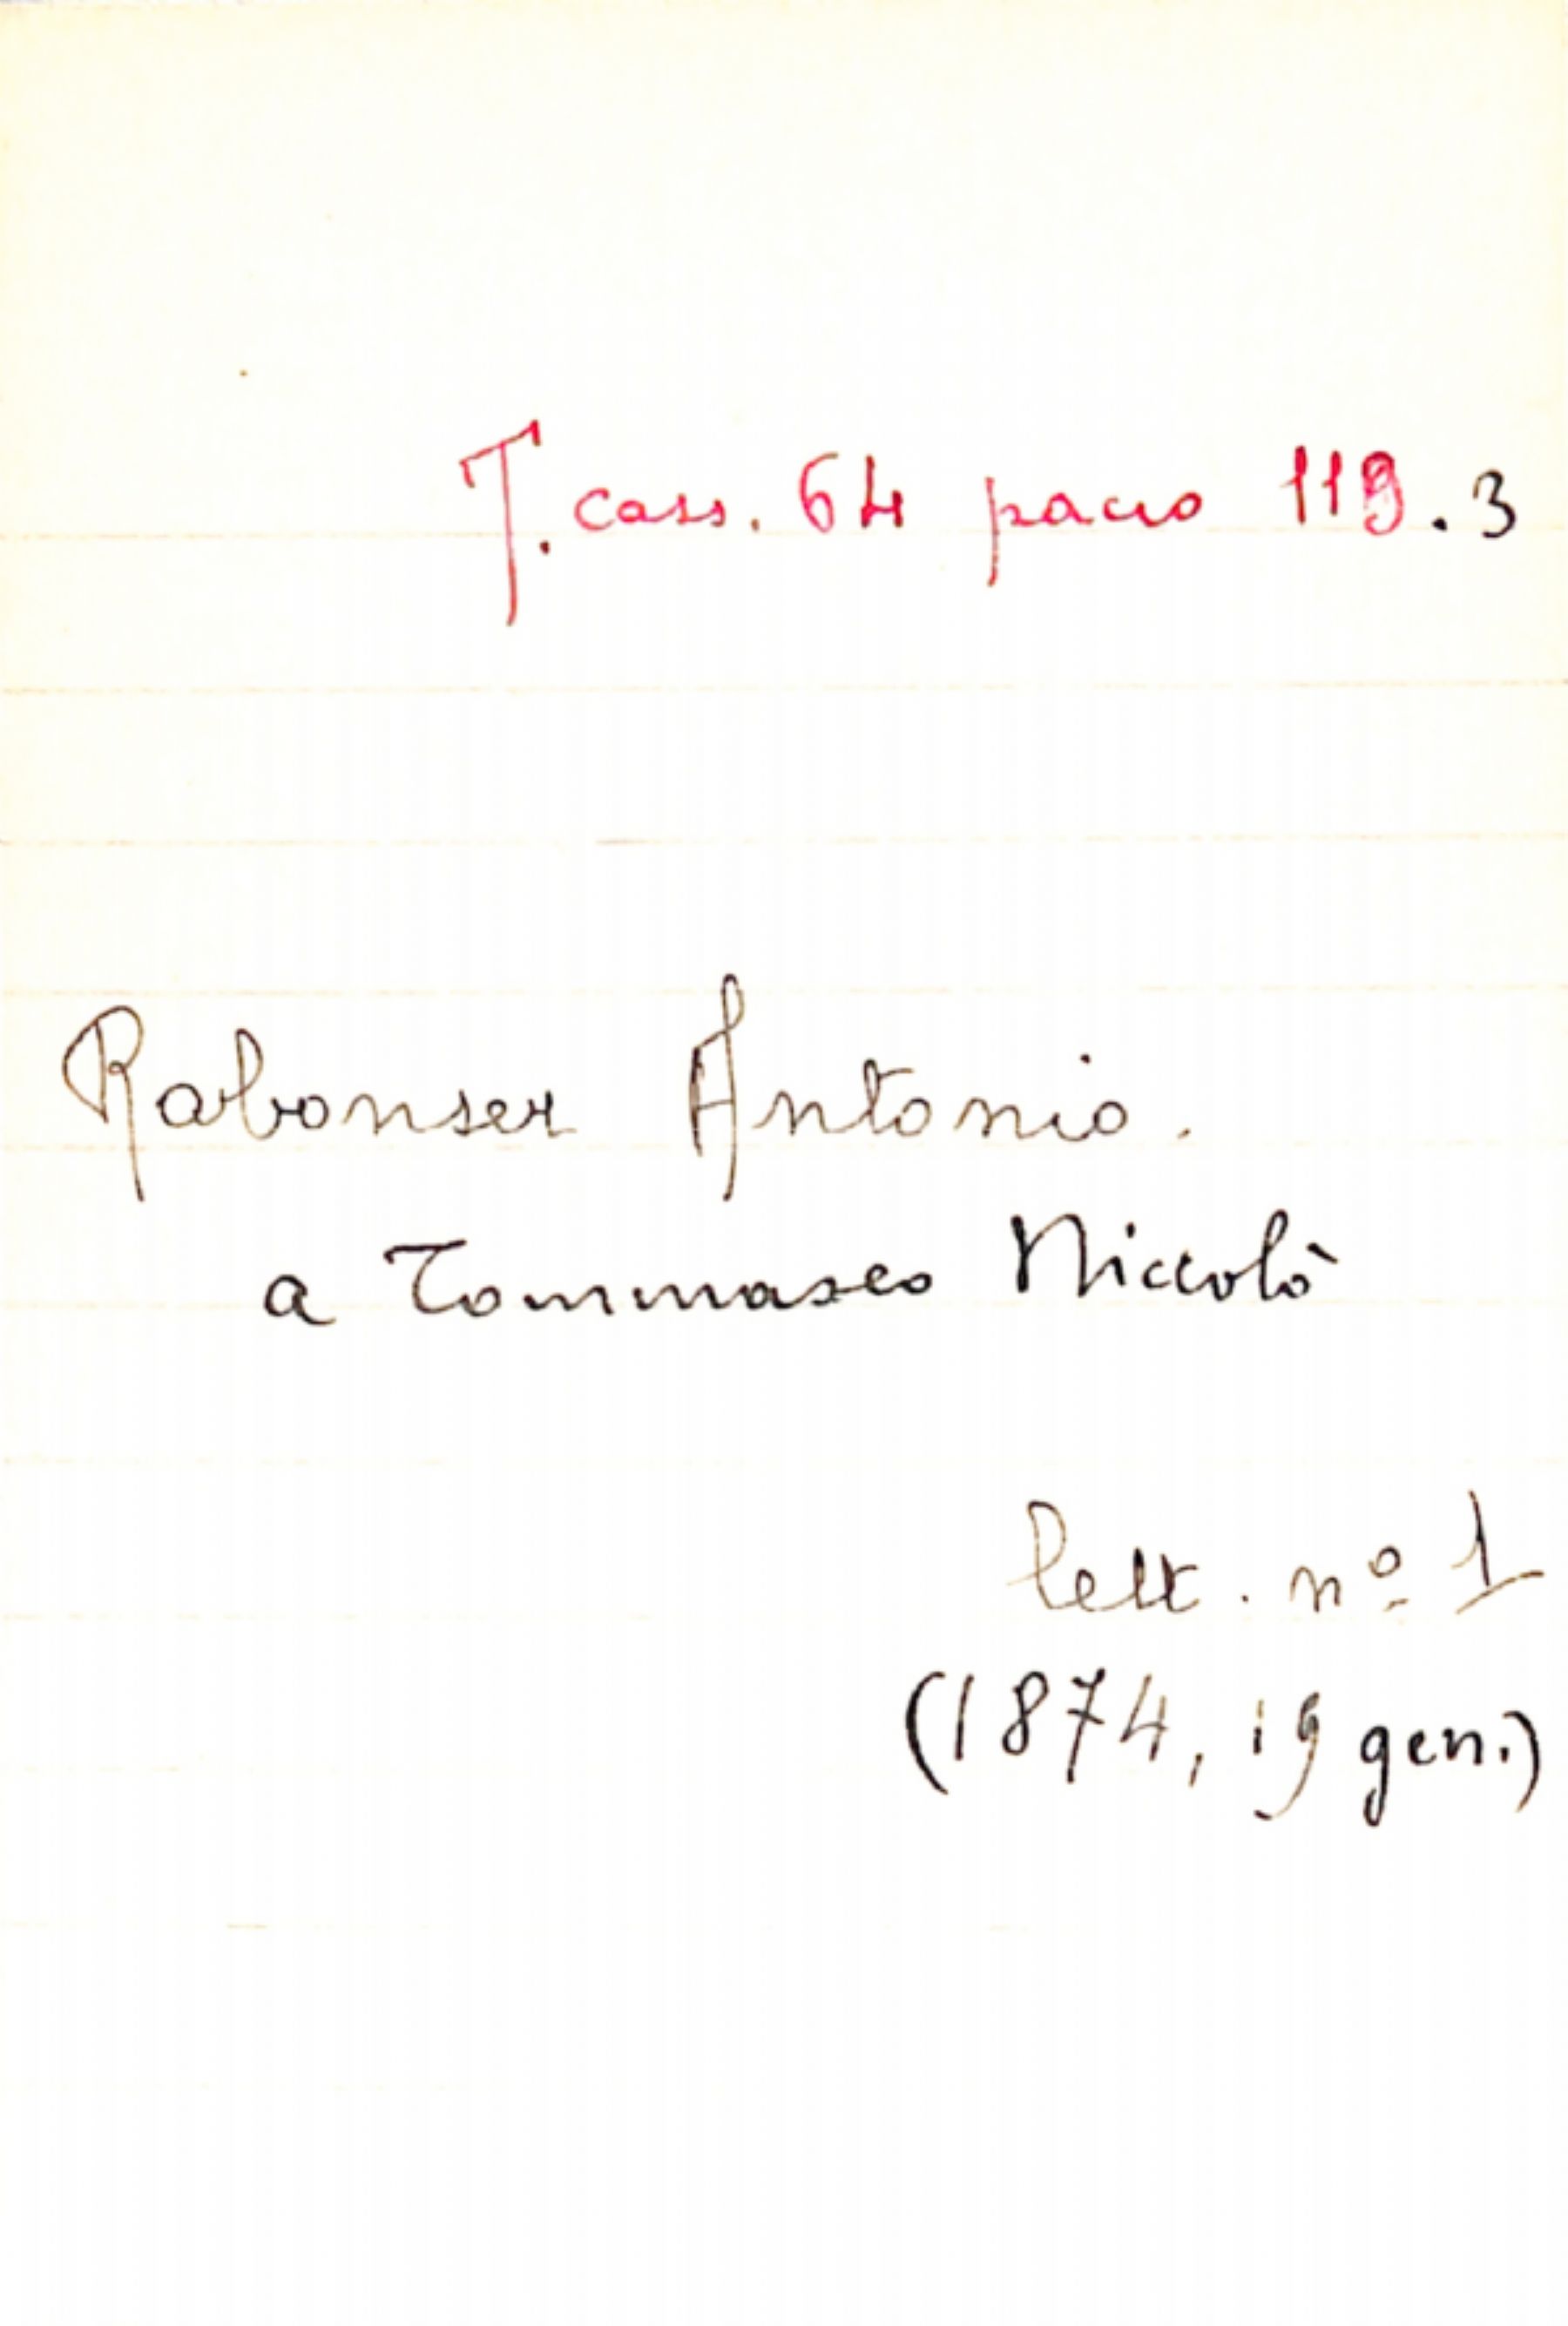 T. cass. 64 pacco 119.3
Rabonser Antonio.
a Tommaseo Niccolò
lett. nº 1
(1874, 19 gen.)